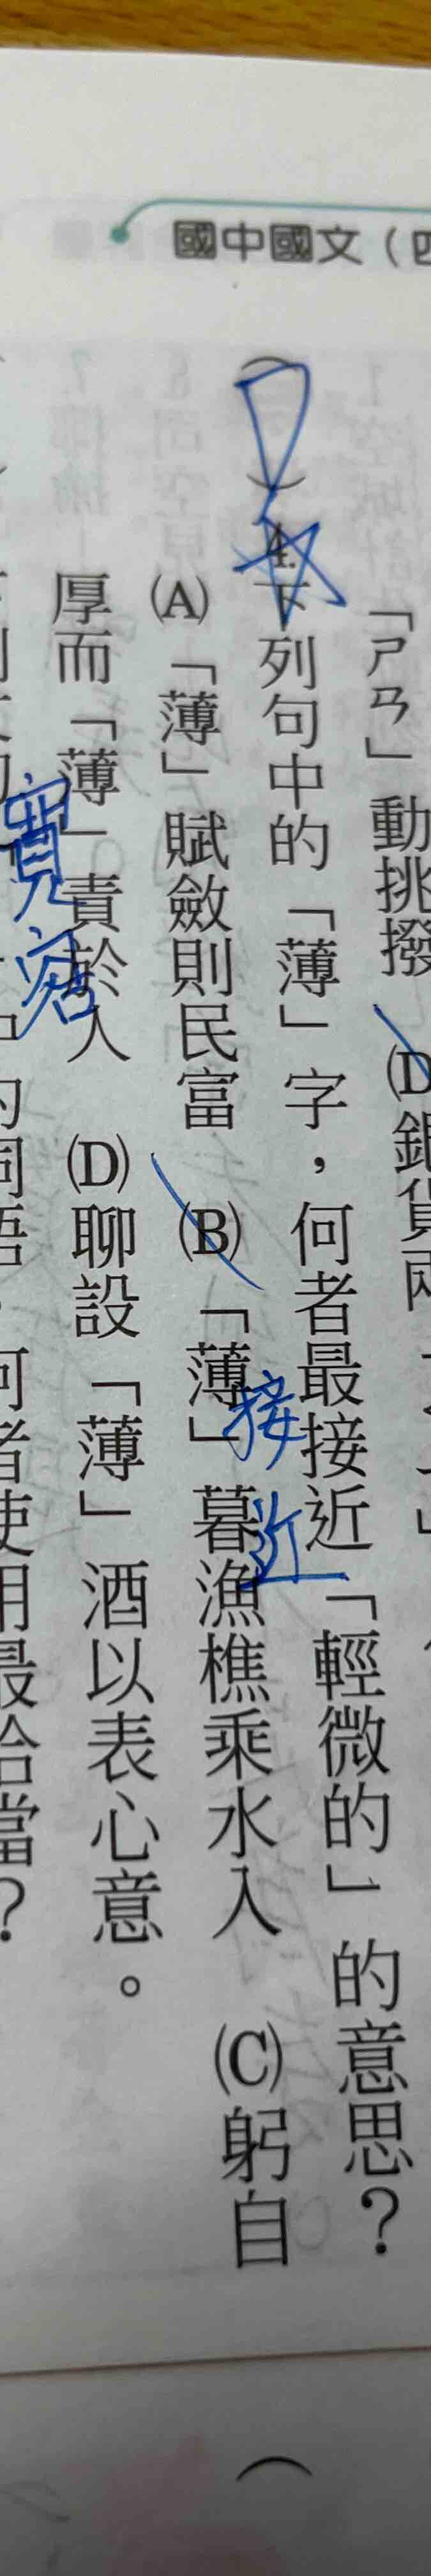 國中國文（四
「ㄕㄢ」動挑撥 (D)銀貨兩
4.下列句中的「薄」字，何者最接近「輕微的」的意思？
(A)「薄」賦斂則民富 (B)「薄」暮漁樵乘水入 (C)躬自
接近
厚而「薄」責於人 (D)聊設「薄」酒以表心意。
寬容
的詞語，何者使用最恰當？